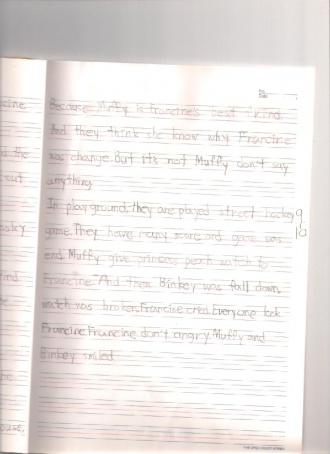 Because Muffy is Francine's best friend.
And they think she know why Francine
was change. But it's not Muffy don't say
anything.
In play ground, they are played street hockey
game. They have many score and game was
end. Muffy give princess peach watch to
Francine. And then Binkey was fall down
watch was broken. Francine cried. Everyone look
Francine. Francine don't angry. Muffy and
Binkey smiled